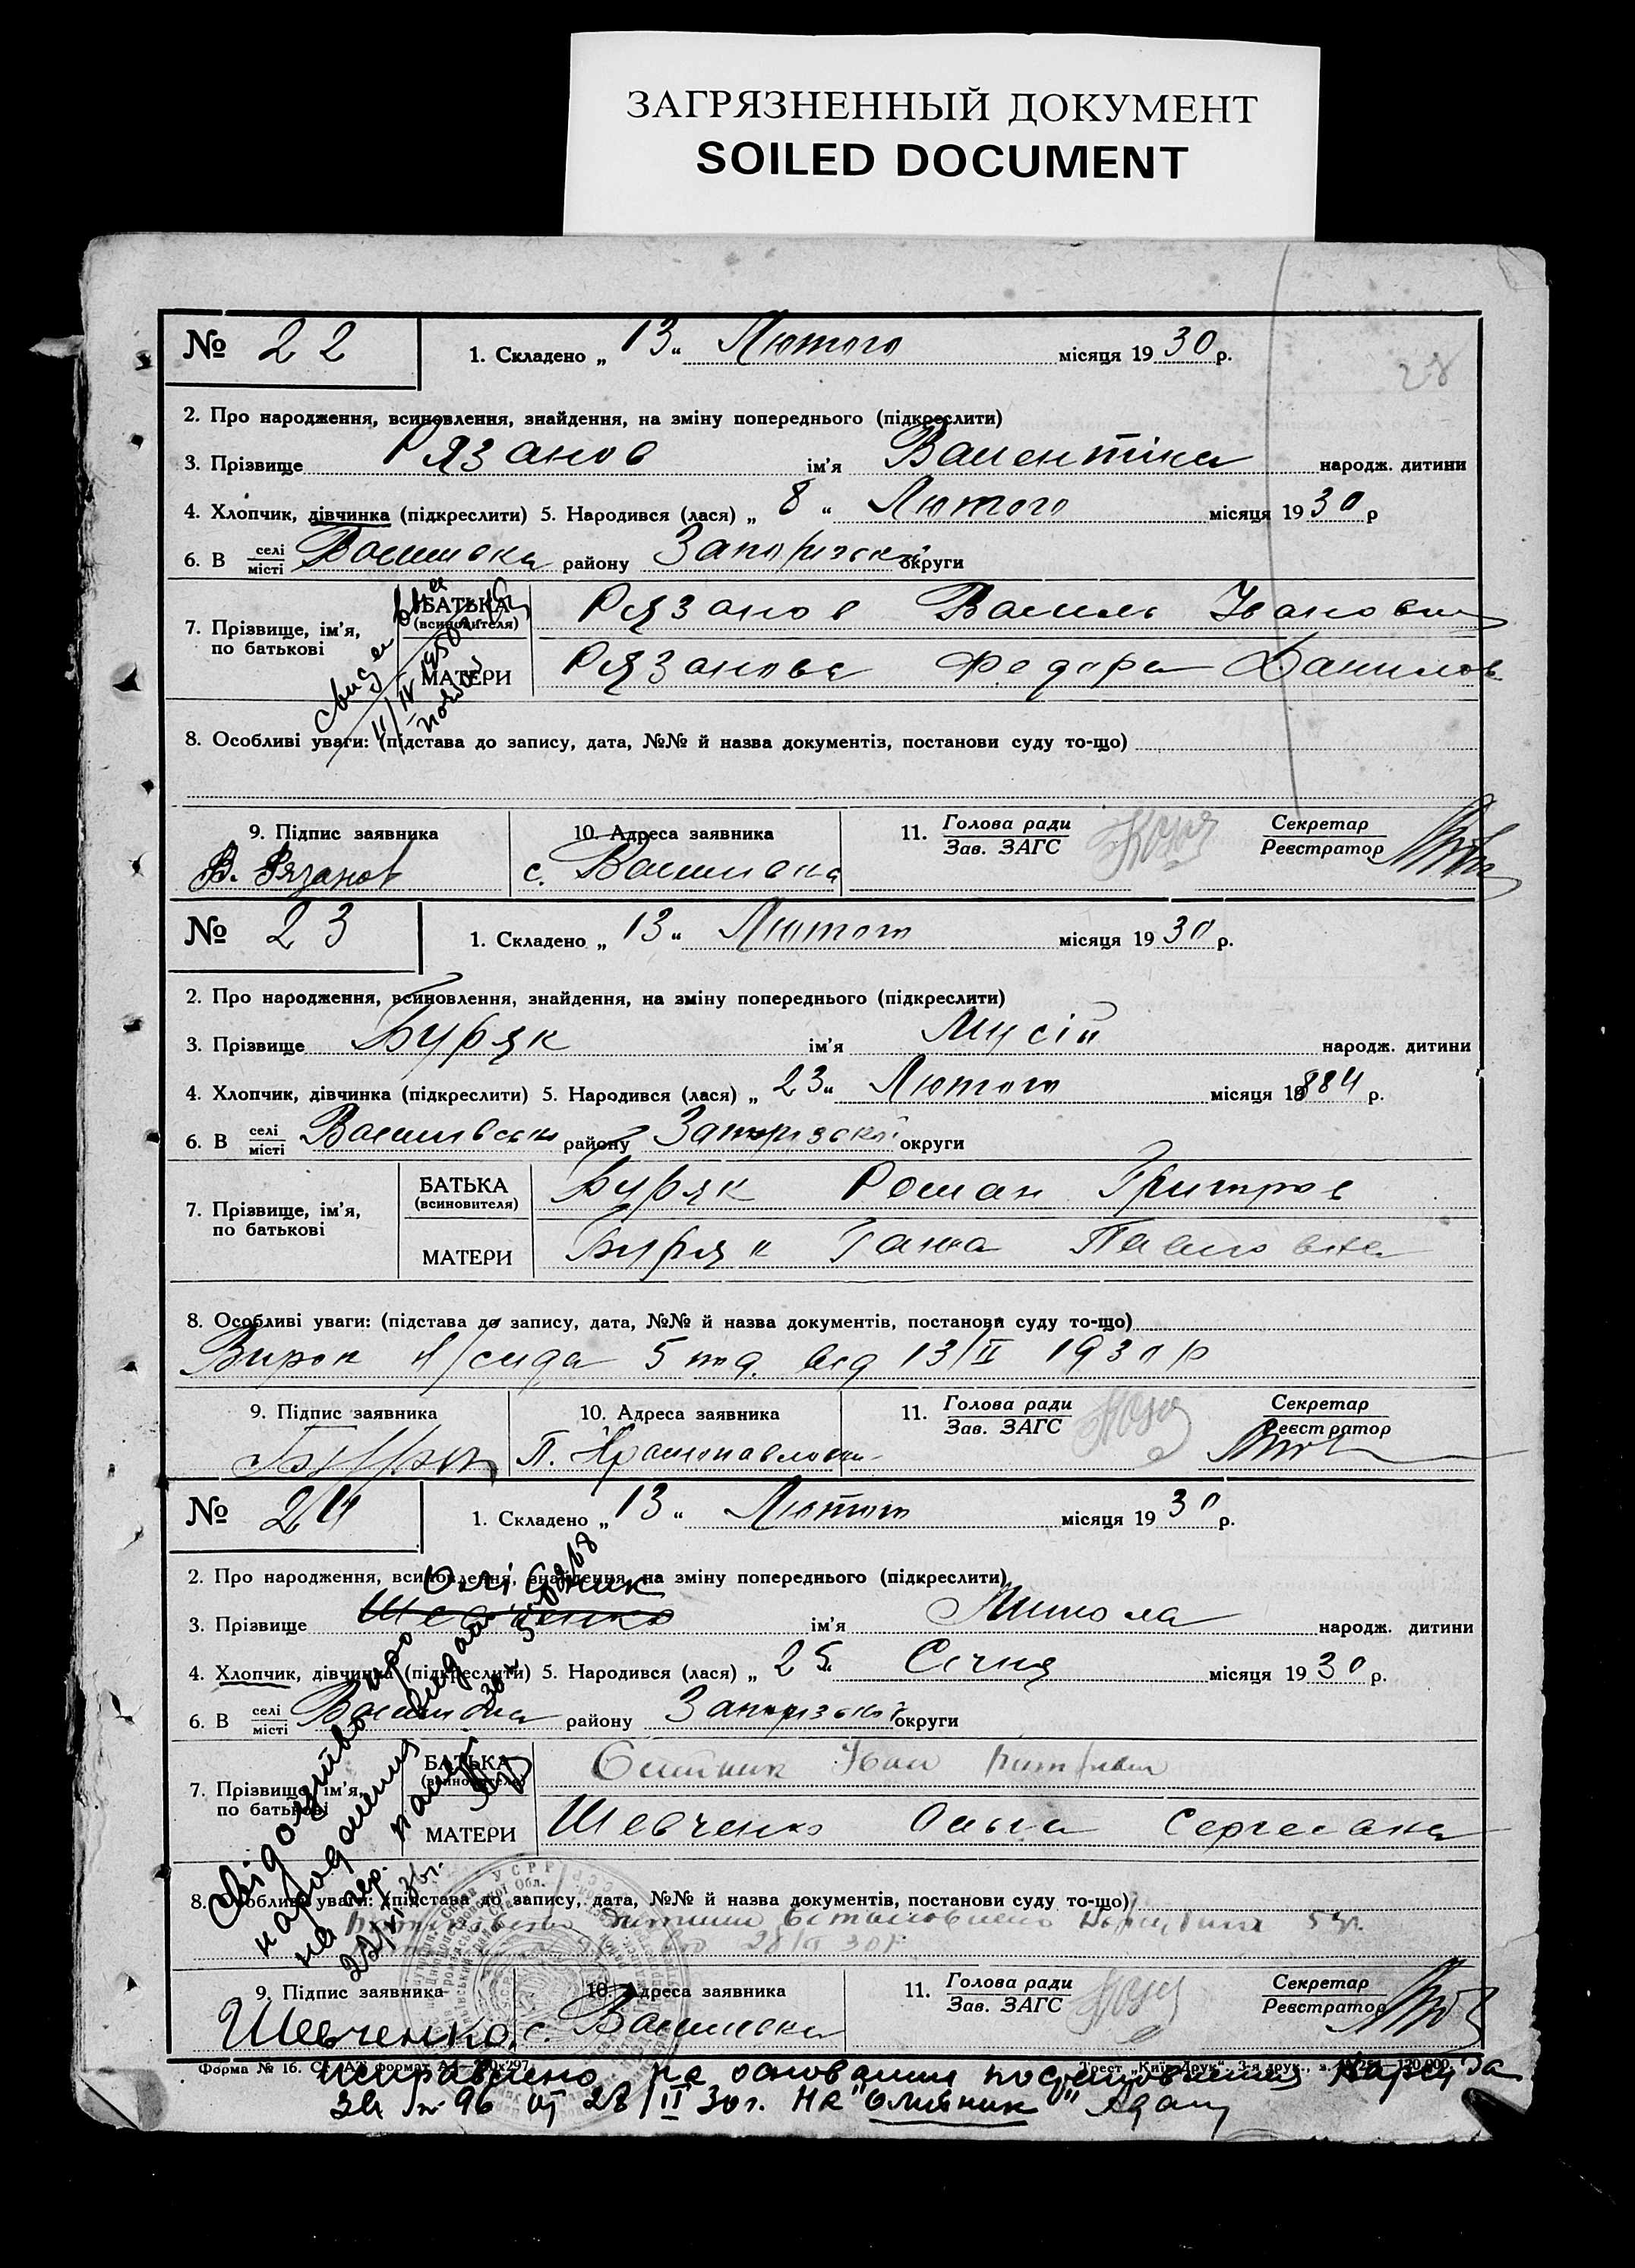 ЗАГРЯЗНЕННЫЙ ДОКУМЕНТ
SOILED DOCUMENT
28
№ 22 1. Складено „ 13 “ Лютого місяця 19 30 р.
2. Про народження, всиновлення, знайдення, на зміну попереднього (підкреслити)
3. Прізвище Рязанов ім’я Валентіна народж. дитини
4. Хлопчик, дівчинка (підкреслити) 5. Народився (лася) „ 8 “ Лютого місяця 19 30 р
6. В селі місті Василівка району Запорізької округи
7. Прізвище, ім’я, по батькові
БАТЬКА (всиновителя) Рязанов Василь Іванович
МАТЕРИ Рязанова Федора Данилов
8. Особливі уваги: (підстава до запису, дата, №№ й назва документів, постанови суду то-що)
9. Підпис заявника 10. Адреса заявника 11. Голова ради Секретар
Зав. ЗАГС Реєстратор
В. Рязанов с. Василівка
№ 23 1. Складено „ 13 “ Лютого місяця 19 30 р.
2. Про народження, всиновлення, знайдення, на зміну попереднього (підкреслити)
3. Прізвище Буряк ім’я Мусій народж. дитини
4. Хлопчик, дівчинка (підкреслити) 5. Народився (лася) „ 23 “ Лютого місяця 1884 р.
6. В селі місті Василівськ району Запорізької округи
7. Прізвище, ім’я, по батькові
БАТЬКА (всиновителя) Буряк Роман Григоров
МАТЕРИ Буряк Ганна Павловна
8. Особливі уваги: (підстава до запису, дата, №№ й назва документів, постанови суду то-що)
Вирок Н/суда 5 від 13/II 1930 р
9. Підпис заявника 10. Адреса заявника 11. Голова ради Секретар
Зав. ЗАГС Реєстратор
П.
№ 24 1. Складено „ 13 “ Лютого місяця 19 30 р.
2. Про народження, всиновлення, знайдення, на зміну попереднього (підкреслити)
Олійник
3. Прізвище Шевченко ім’я Микола народж. дитини
4. Хлопчик, дівчинка (підкреслити) 5. Народився (лася) „ 25 “ Січня місяця 19 30 р.
6. В селі місті Василівка району Запорізької округи
7. Прізвище, ім’я, по батькові
БАТЬКА (всиновителя) Олійник Іван
МАТЕРИ Шевченко Ольга Сергеевна
Свідоцтво про
народження видано
на
22/XI 36 г.
8. Особливі уваги: (підстава до запису, дата, №№ й назва документів, постанови суду то-що)
дитини встановлено
28/II 30 р
9. Підпис заявника 10. Адреса заявника 11. Голова ради Секретар
Зав. ЗАГС Реєстратор
Шевченко с. Василівка
Форма № 16. Ст. А4 формат А4—210х297 Трест „Київ-Друк“, 3-я друк.,
Исправлено на основании постановления Нарсуда
за № 96 от 28/II 30 г. на "Олийник"